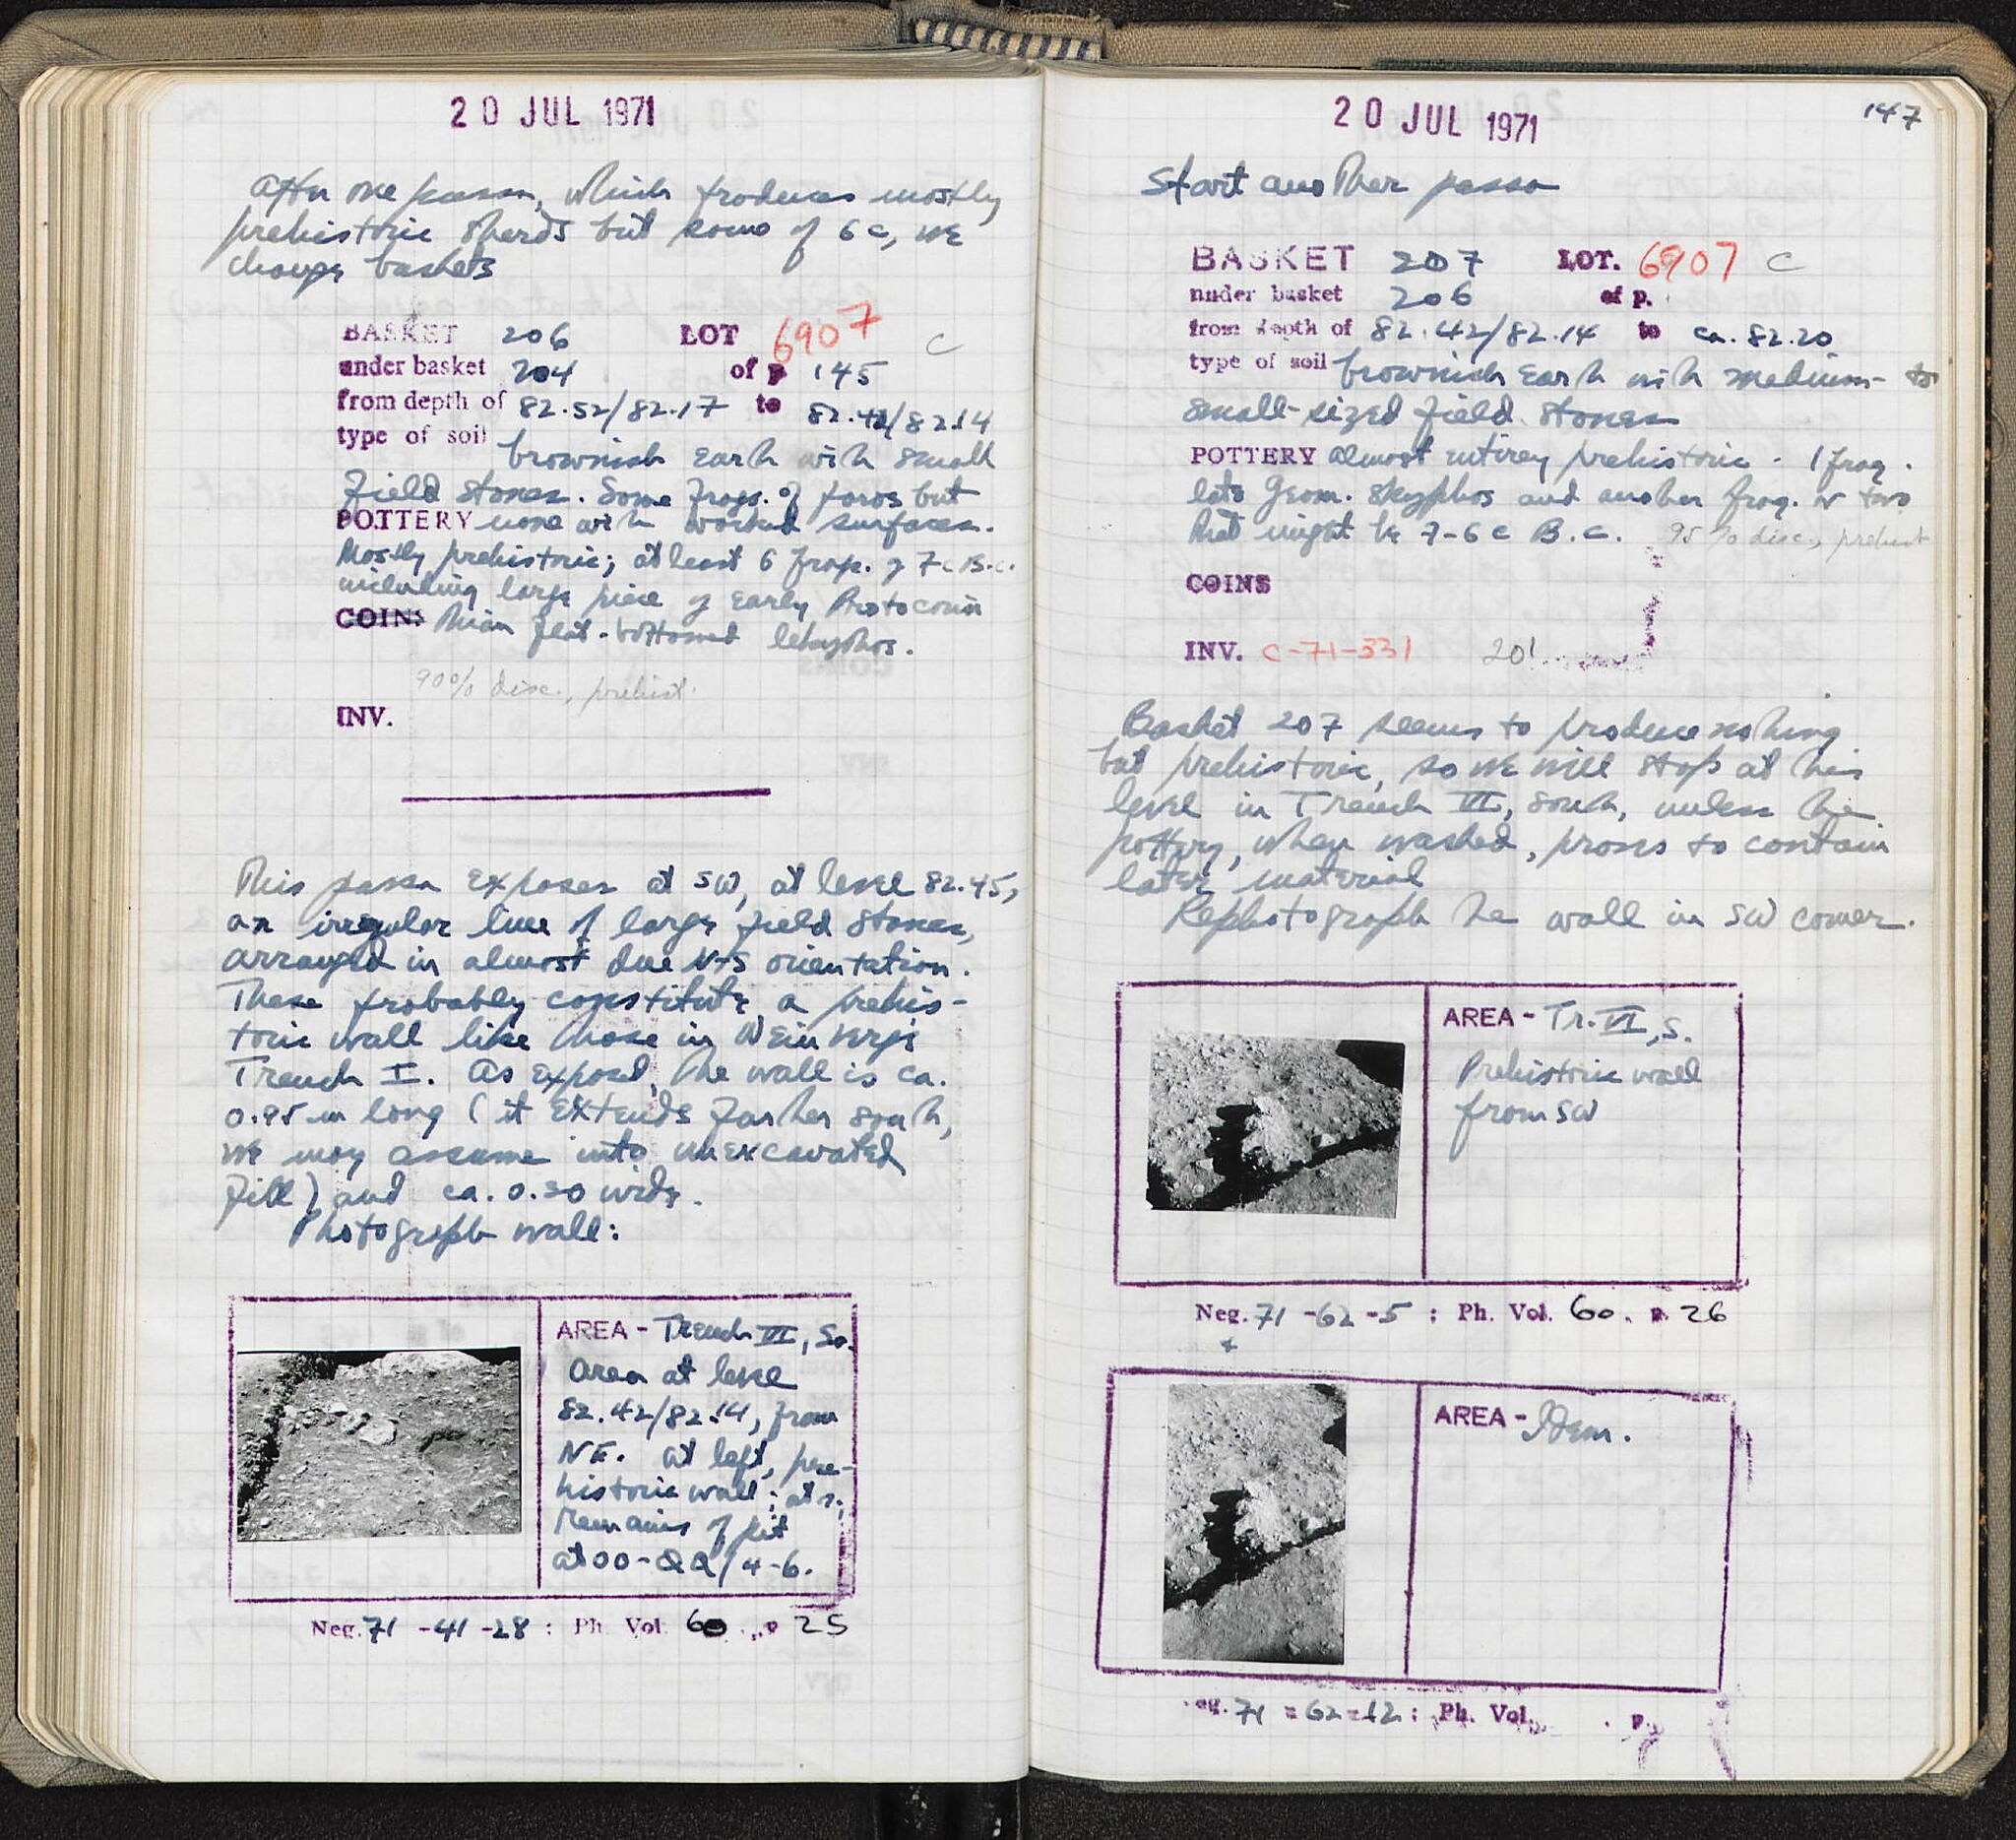 20 JUL 1971
After one passa, which produces mostly
prehistoric sherds but some of 6 c, we
change baskets
BASKET 206 LOT 6907 C
under basket 204 of p 145
from depth of 82.52/82.17 to 82.42/82.14
type of soil brownish earth with small
field stones. Some frags. of poros but
POTTERY none with worked surfaces.
Mostly prehistoric; at least 6 frags. of 7 c B.C.
including large piece of Early Protocorin
COINS thian flat-bottomed lekythos.
90% disc., prehist.
INV.
This passa exposes at SW, at level 82.45,
an irregular line of large field stones,
arranged in almost due N-S orientation.
These probably constitute a prehis-
toric wall like those in Weinberg's
Trench I. As exposed, the wall is ca.
0.95 m long (it extends farther south,
we may assume into unexcavated
fill) and ca. 0.30 wide.
Photograph wall:
AREA - Trench VI, So.
Area at level
82.42/82.14, from
NE. At left, pre-
historic wall; at r.,
remains of pit
at OO-QQ/4-6.
Neg. 71-41-28 : Ph. Vol. 60 p 25
20 JUL 1971
147
Start another passa
BASKET 207 LOT. 6907 C
under basket 206 of p.
from depth of 82.42/82.14 to ca. 82.20
type of soil brownish earth with medium- to
small-sized field stones
POTTERY almost entirey prehistoric. 1 frag.
late Geom. skyphos and another frag. or two
that might be 7-6 c B.C. 95% disc., prehist
COINS
INV. C-71-331 201
Basket 207 seems to produce nothing
but prehistoric, so we will stop at this
level in Trench VI, South, unless the
pottery, when washed, proves to contain
later material
Rephotograph the wall in SW corner.
AREA - Tr. VI, S.
Prehistoric wall
from SW
Neg. 71-62-5 : Ph. Vol. 60. p. 26
+
AREA - Idem.
eg. 71-62-12 : Ph. Vol. p.